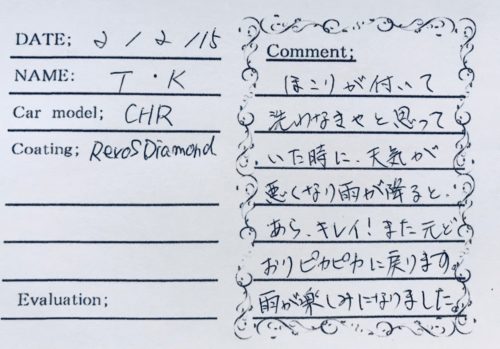 DATE; 2/2/15
NAME: T・K
Car model; CHR
Coating; RevoSDiamond
Evaluation;
Comment;
ほこりが付いて
洗わなきゃと思って
いた時に、天気が
悪くなり雨が降ると、
あら、キレイ!また元ど
おりピカピカに戻ります。
雨が楽しみになりました。